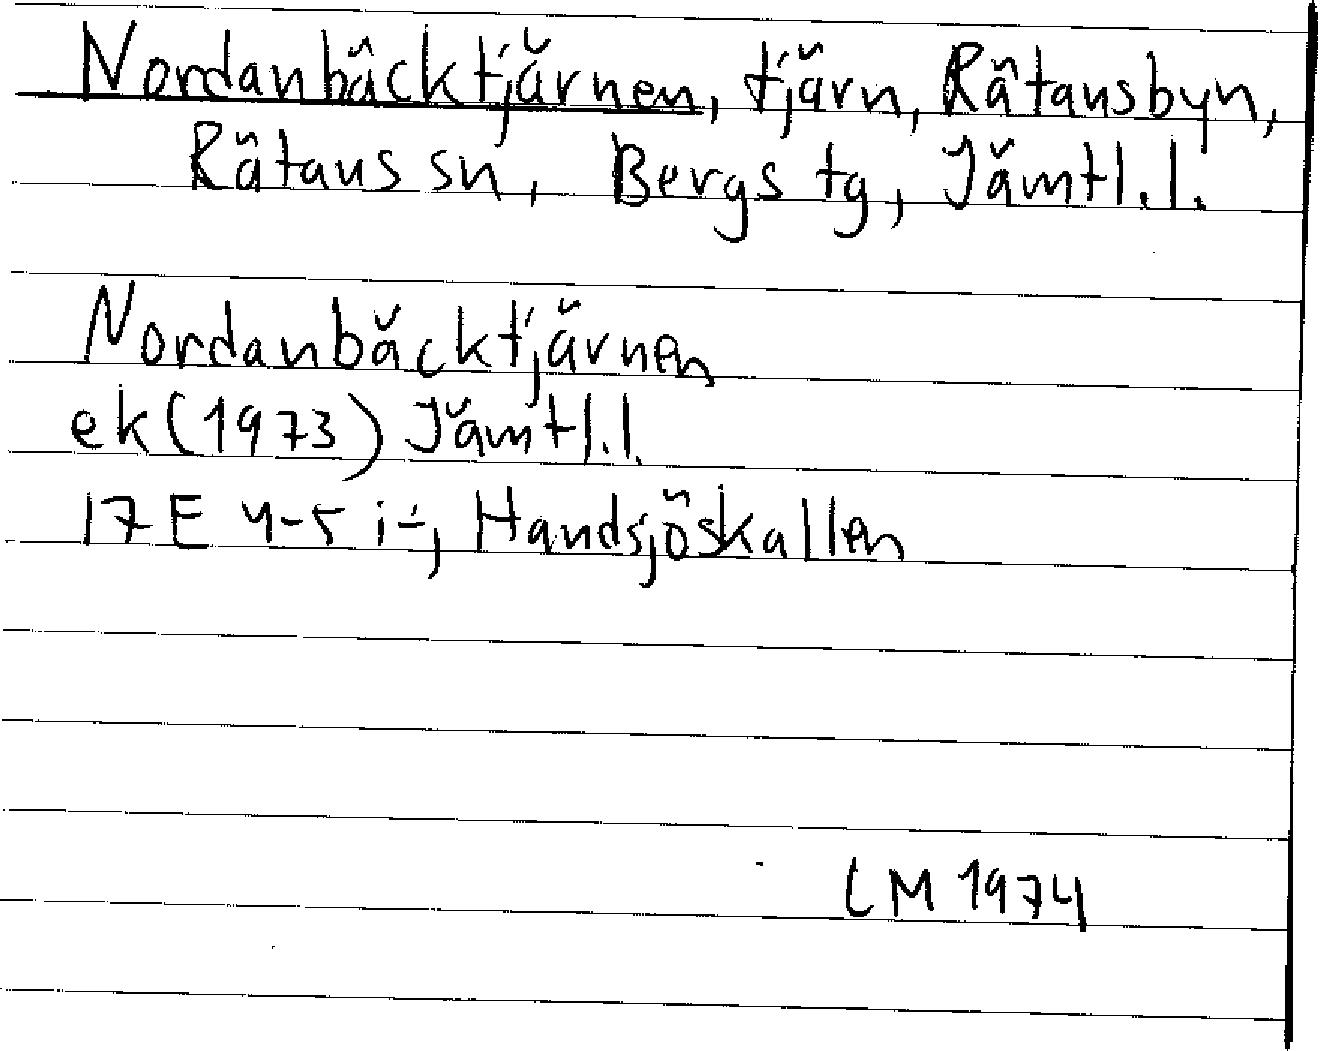 Nordanbäcktjärnen, tjärn, Rätansbyn,
Rätans sn, Bergs tg, Jämtl.l.
Nordanbäcktjärnen
ek (1973) Jämtl.l.
17E 4-5 i-j Handsjöskallen
LM 1974